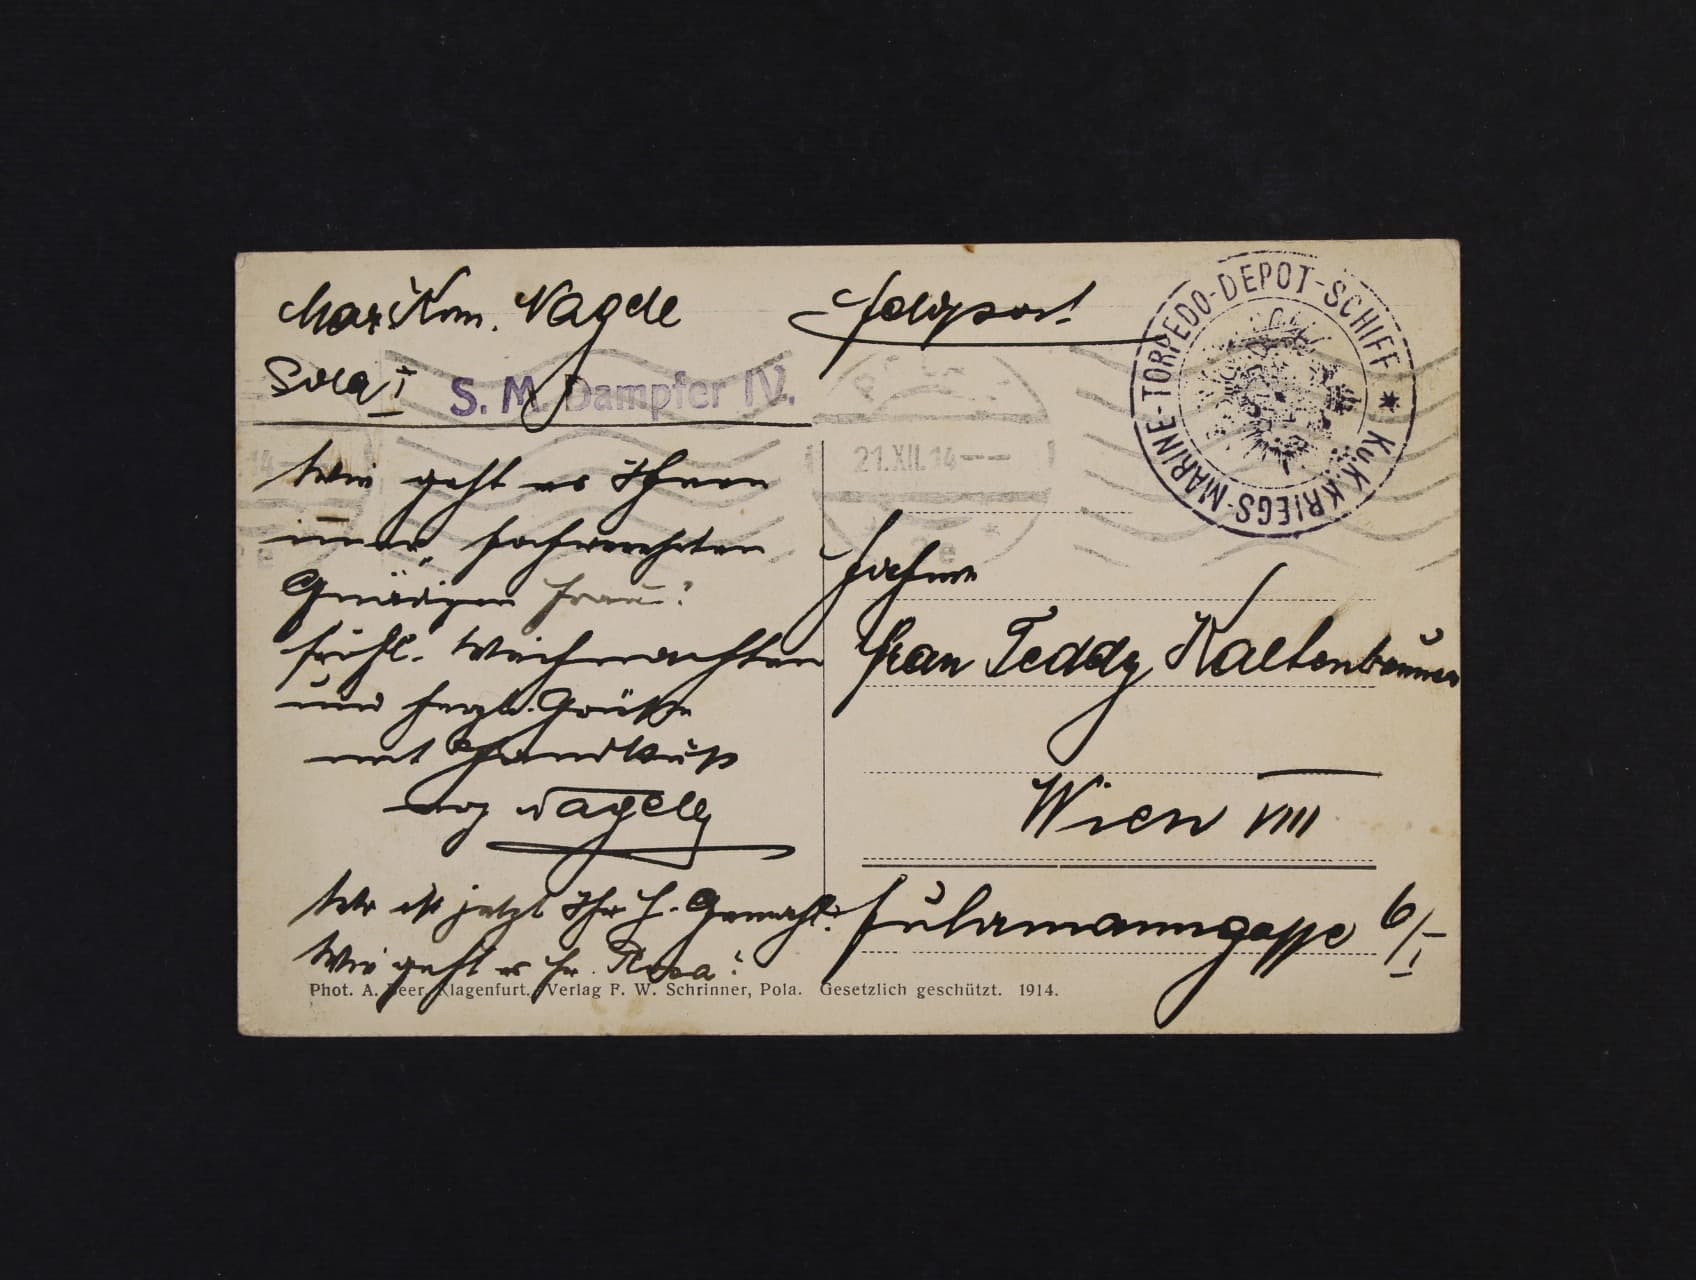 MarKom. Nagele
Pola I
S. M. Dampfer IV.
Feldpost
K.u.K. KRIEGS-MARINE-TORPEDO-DEPOT-SCHIFF *
21.XII.14
Wie geht es Ihnen
immer, hochverehrten
Gnädigen Frau?
Fröhl. Weihnachten
und herzl. Grüße
mit Handkuß
Nagele
Wo ist jetzt Ihr H. Gemahl?
Wie geht es Fr.
Phot. A. Beer, Klagenfurt. Verlag F. W. Schrinner, Pola. Gesetzlich geschützt. 1914.
Frau Teddy Kaltenbrunner
Wien VIII
Fuhrmanngasse 6/I